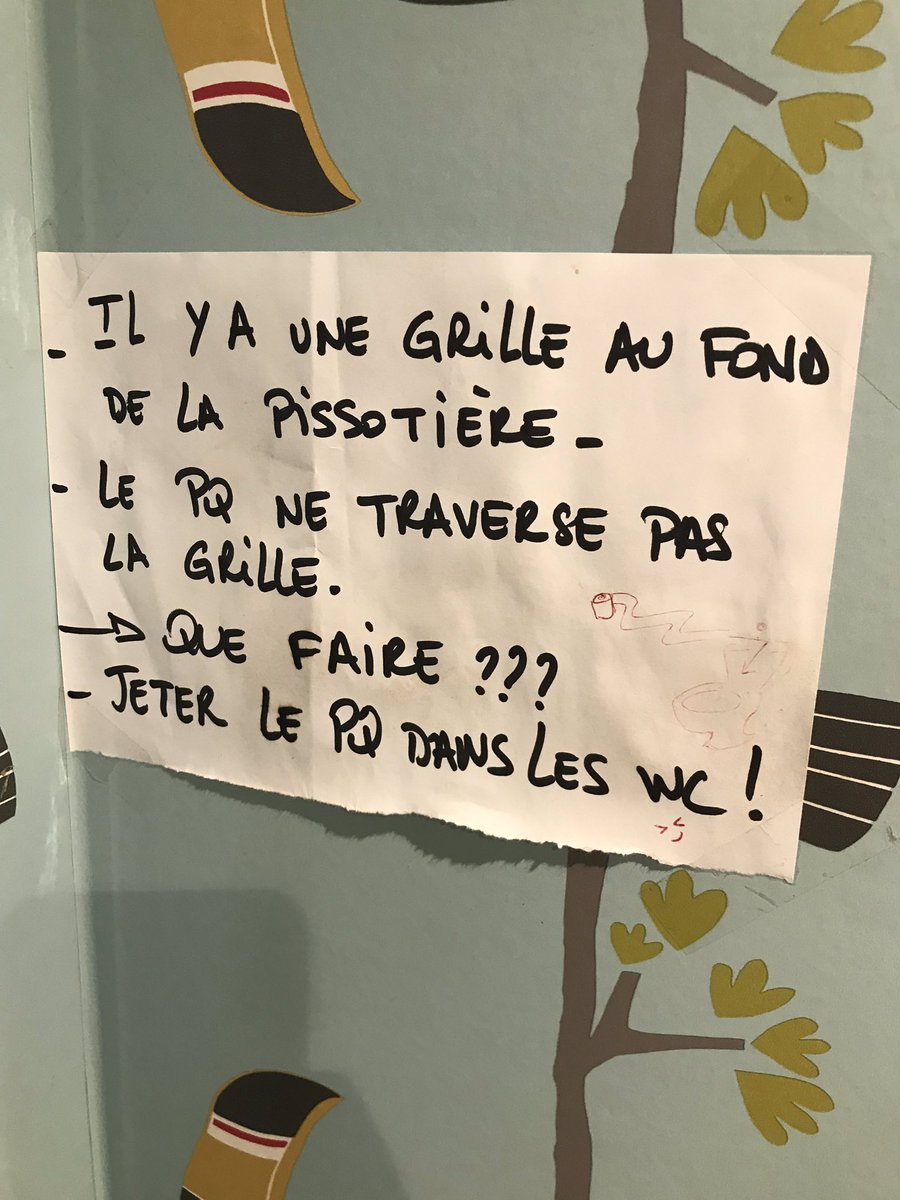 - IL Y A UNE GRILLE AU FOND
DE LA PISSOTIÈRE -
- LE PQ NE TRAVERSE PAS
LA GRILLE.
→ QUE FAIRE ???
- JETER LE PQ DANS LES WC !